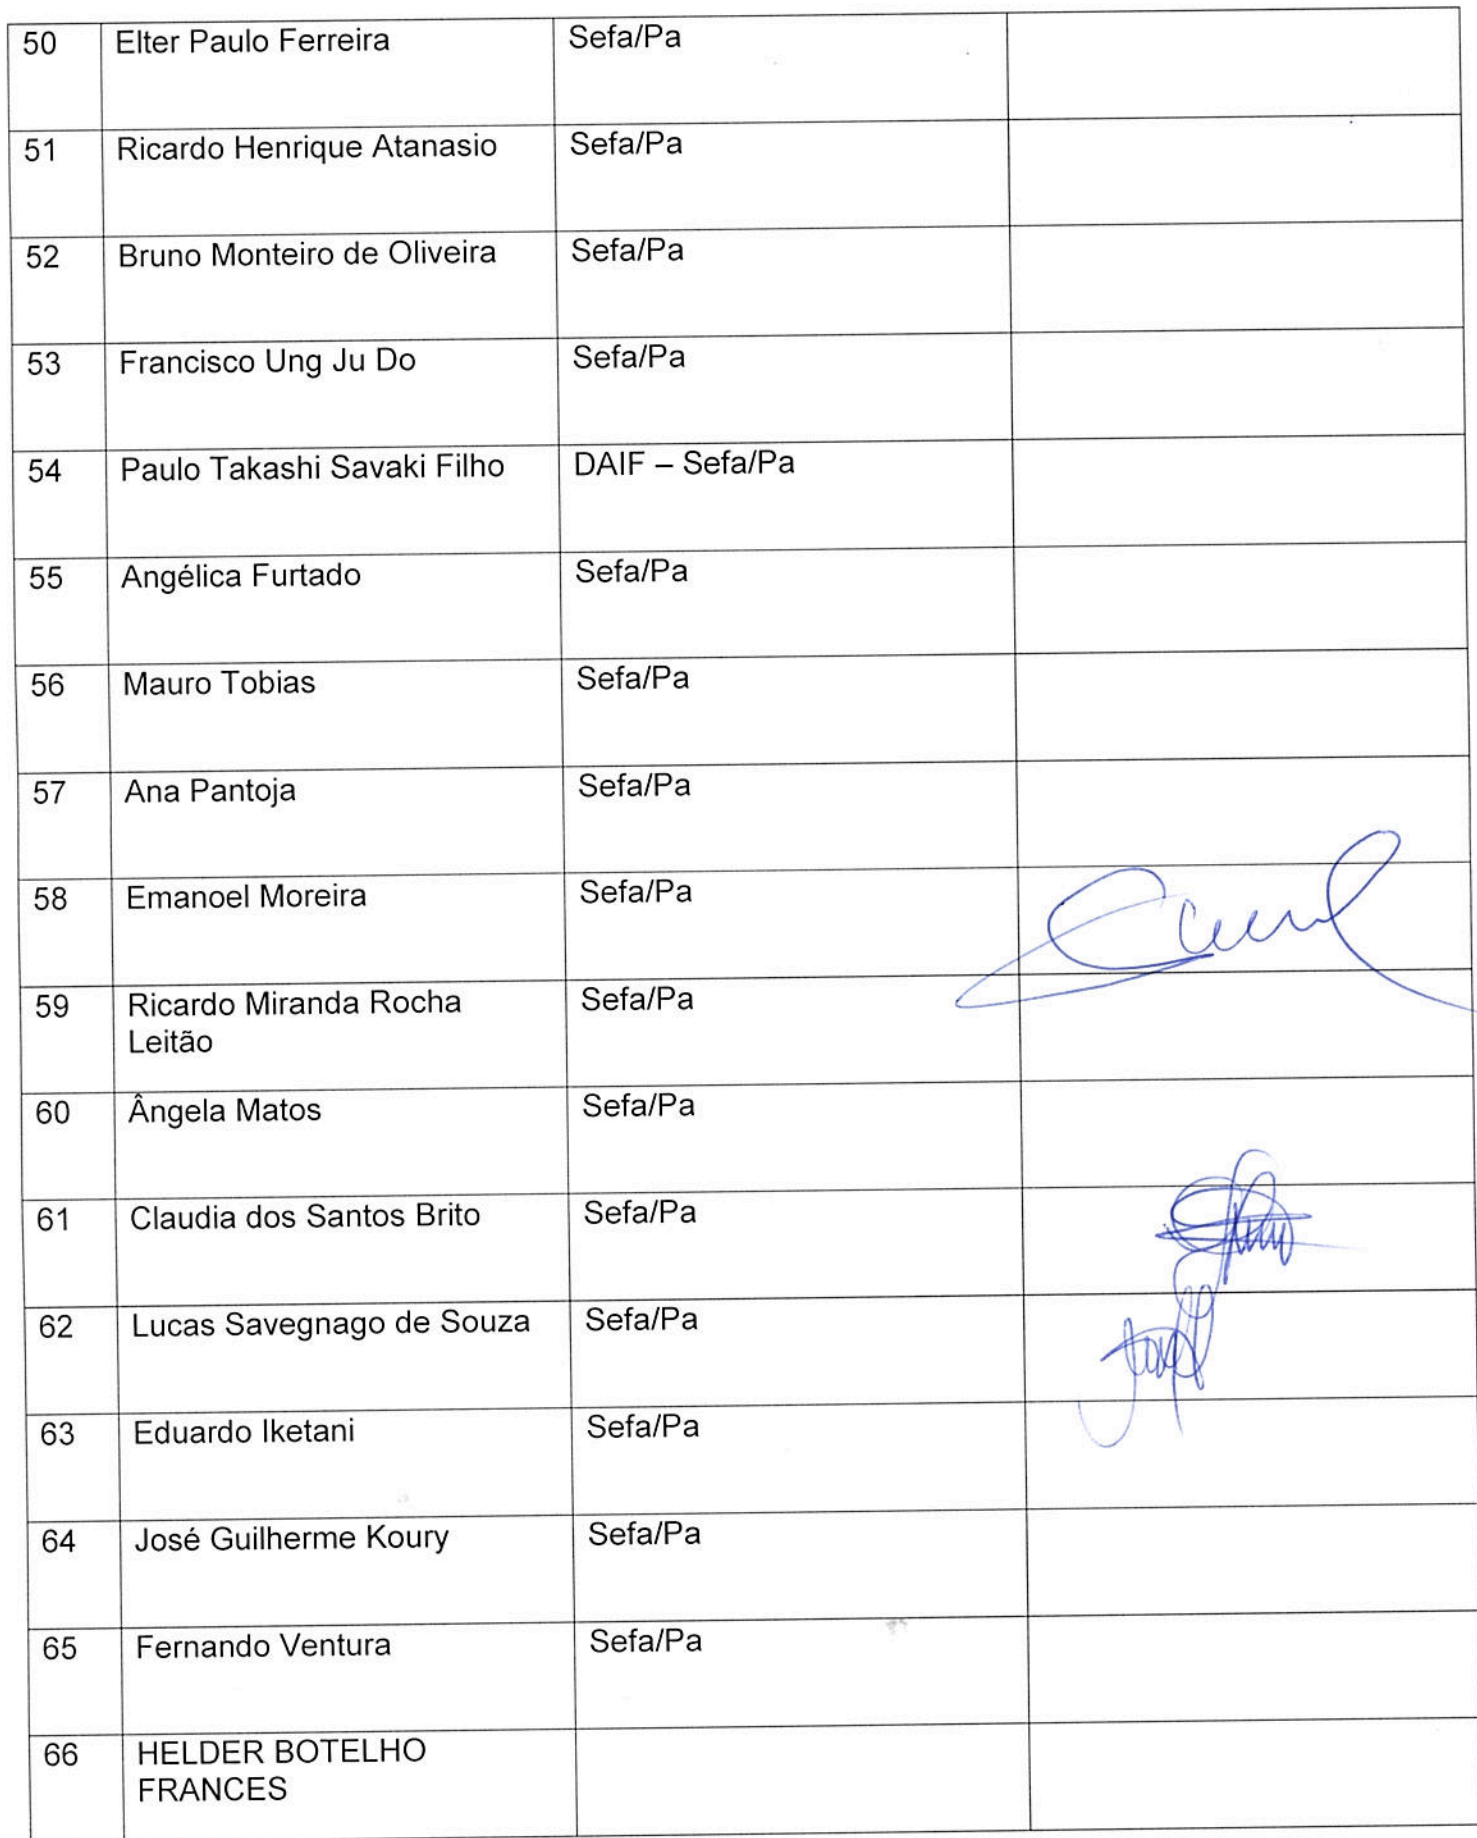 50 Elter Paulo Ferreira Sefa/Pa
51 Ricardo Henrique Atanasio Sefa/Pa
52 Bruno Monteiro de Oliveira Sefa/Pa
53 Francisco Ung Ju Do Sefa/Pa
54 Paulo Takashi Savaki Filho DAIF – Sefa/Pa
55 Angélica Furtado Sefa/Pa
56 Mauro Tobias Sefa/Pa
57 Ana Pantoja Sefa/Pa
58 Emanoel Moreira Sefa/Pa
59 Ricardo Miranda Rocha Sefa/Pa
Leitão
60 Ângela Matos Sefa/Pa
61 Claudia dos Santos Brito Sefa/Pa
62 Lucas Savegnago de Souza Sefa/Pa
63 Eduardo Iketani Sefa/Pa
64 José Guilherme Koury Sefa/Pa
65 Fernando Ventura Sefa/Pa
66 HELDER BOTELHO
FRANCES